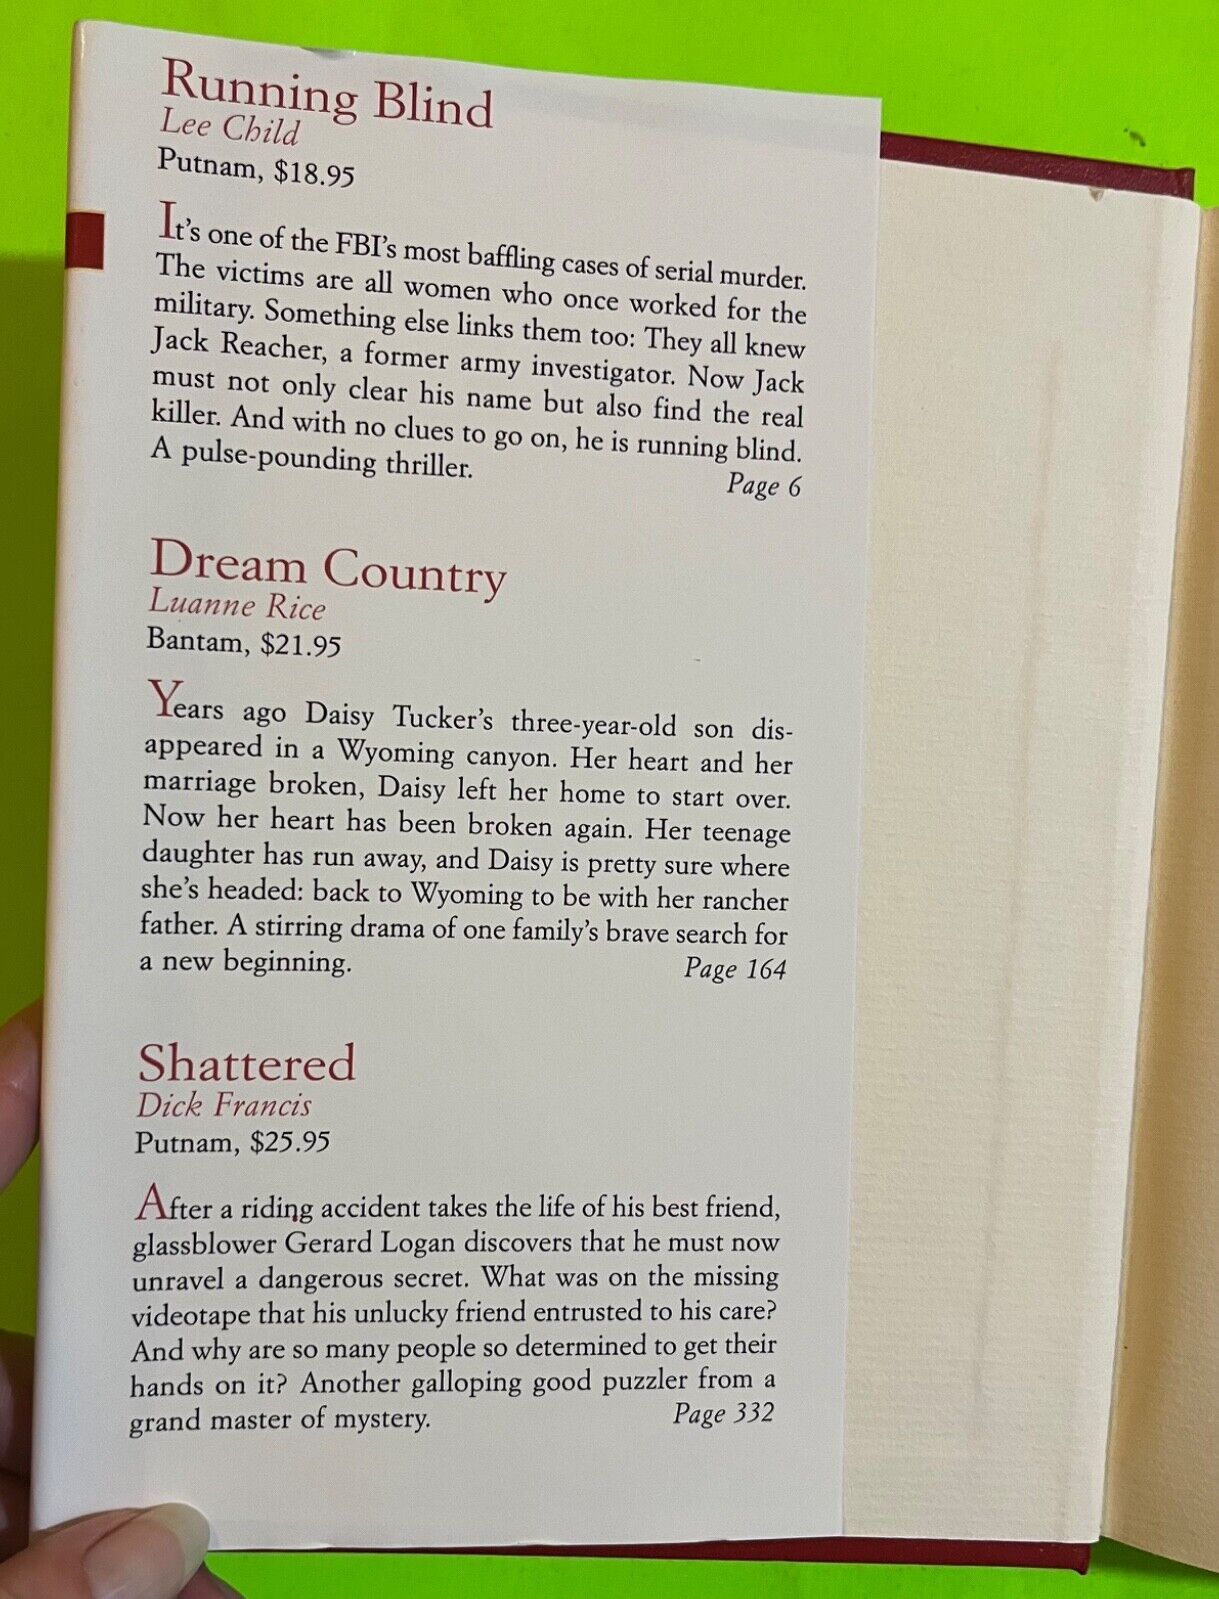 Running Blind
Lee Child
Putnam, $18.95
It's one of the FBI's most baffling cases of serial murder.
The victims are all women who once worked for the
military. Something else links them too: They all knew
Jack Reacher, a former army investigator. Now Jack
must not only clear his name but also find the real
killer. And with no clues to go on, he is running blind.
A pulse-pounding thriller. Page 6
Dream Country
Luanne Rice
Bantam, $21.95
Years ago Daisy Tucker's three-year-old son dis-
appeared in a Wyoming canyon. Her heart and her
marriage broken, Daisy left her home to start over.
Now her heart has been broken again. Her teenage
daughter has run away, and Daisy is pretty sure where
she's headed: back to Wyoming to be with her rancher
father. A stirring drama of one family's brave search for
a new beginning. Page 164
Shattered
Dick Francis
Putnam, $25.95
After a riding accident takes the life of his best friend,
glassblower Gerard Logan discovers that he must now
unravel a dangerous secret. What was on the missing
videotape that his unlucky friend entrusted to his care?
And why are so many people so determined to get their
hands on it? Another galloping good puzzler from a
grand master of mystery. Page 332